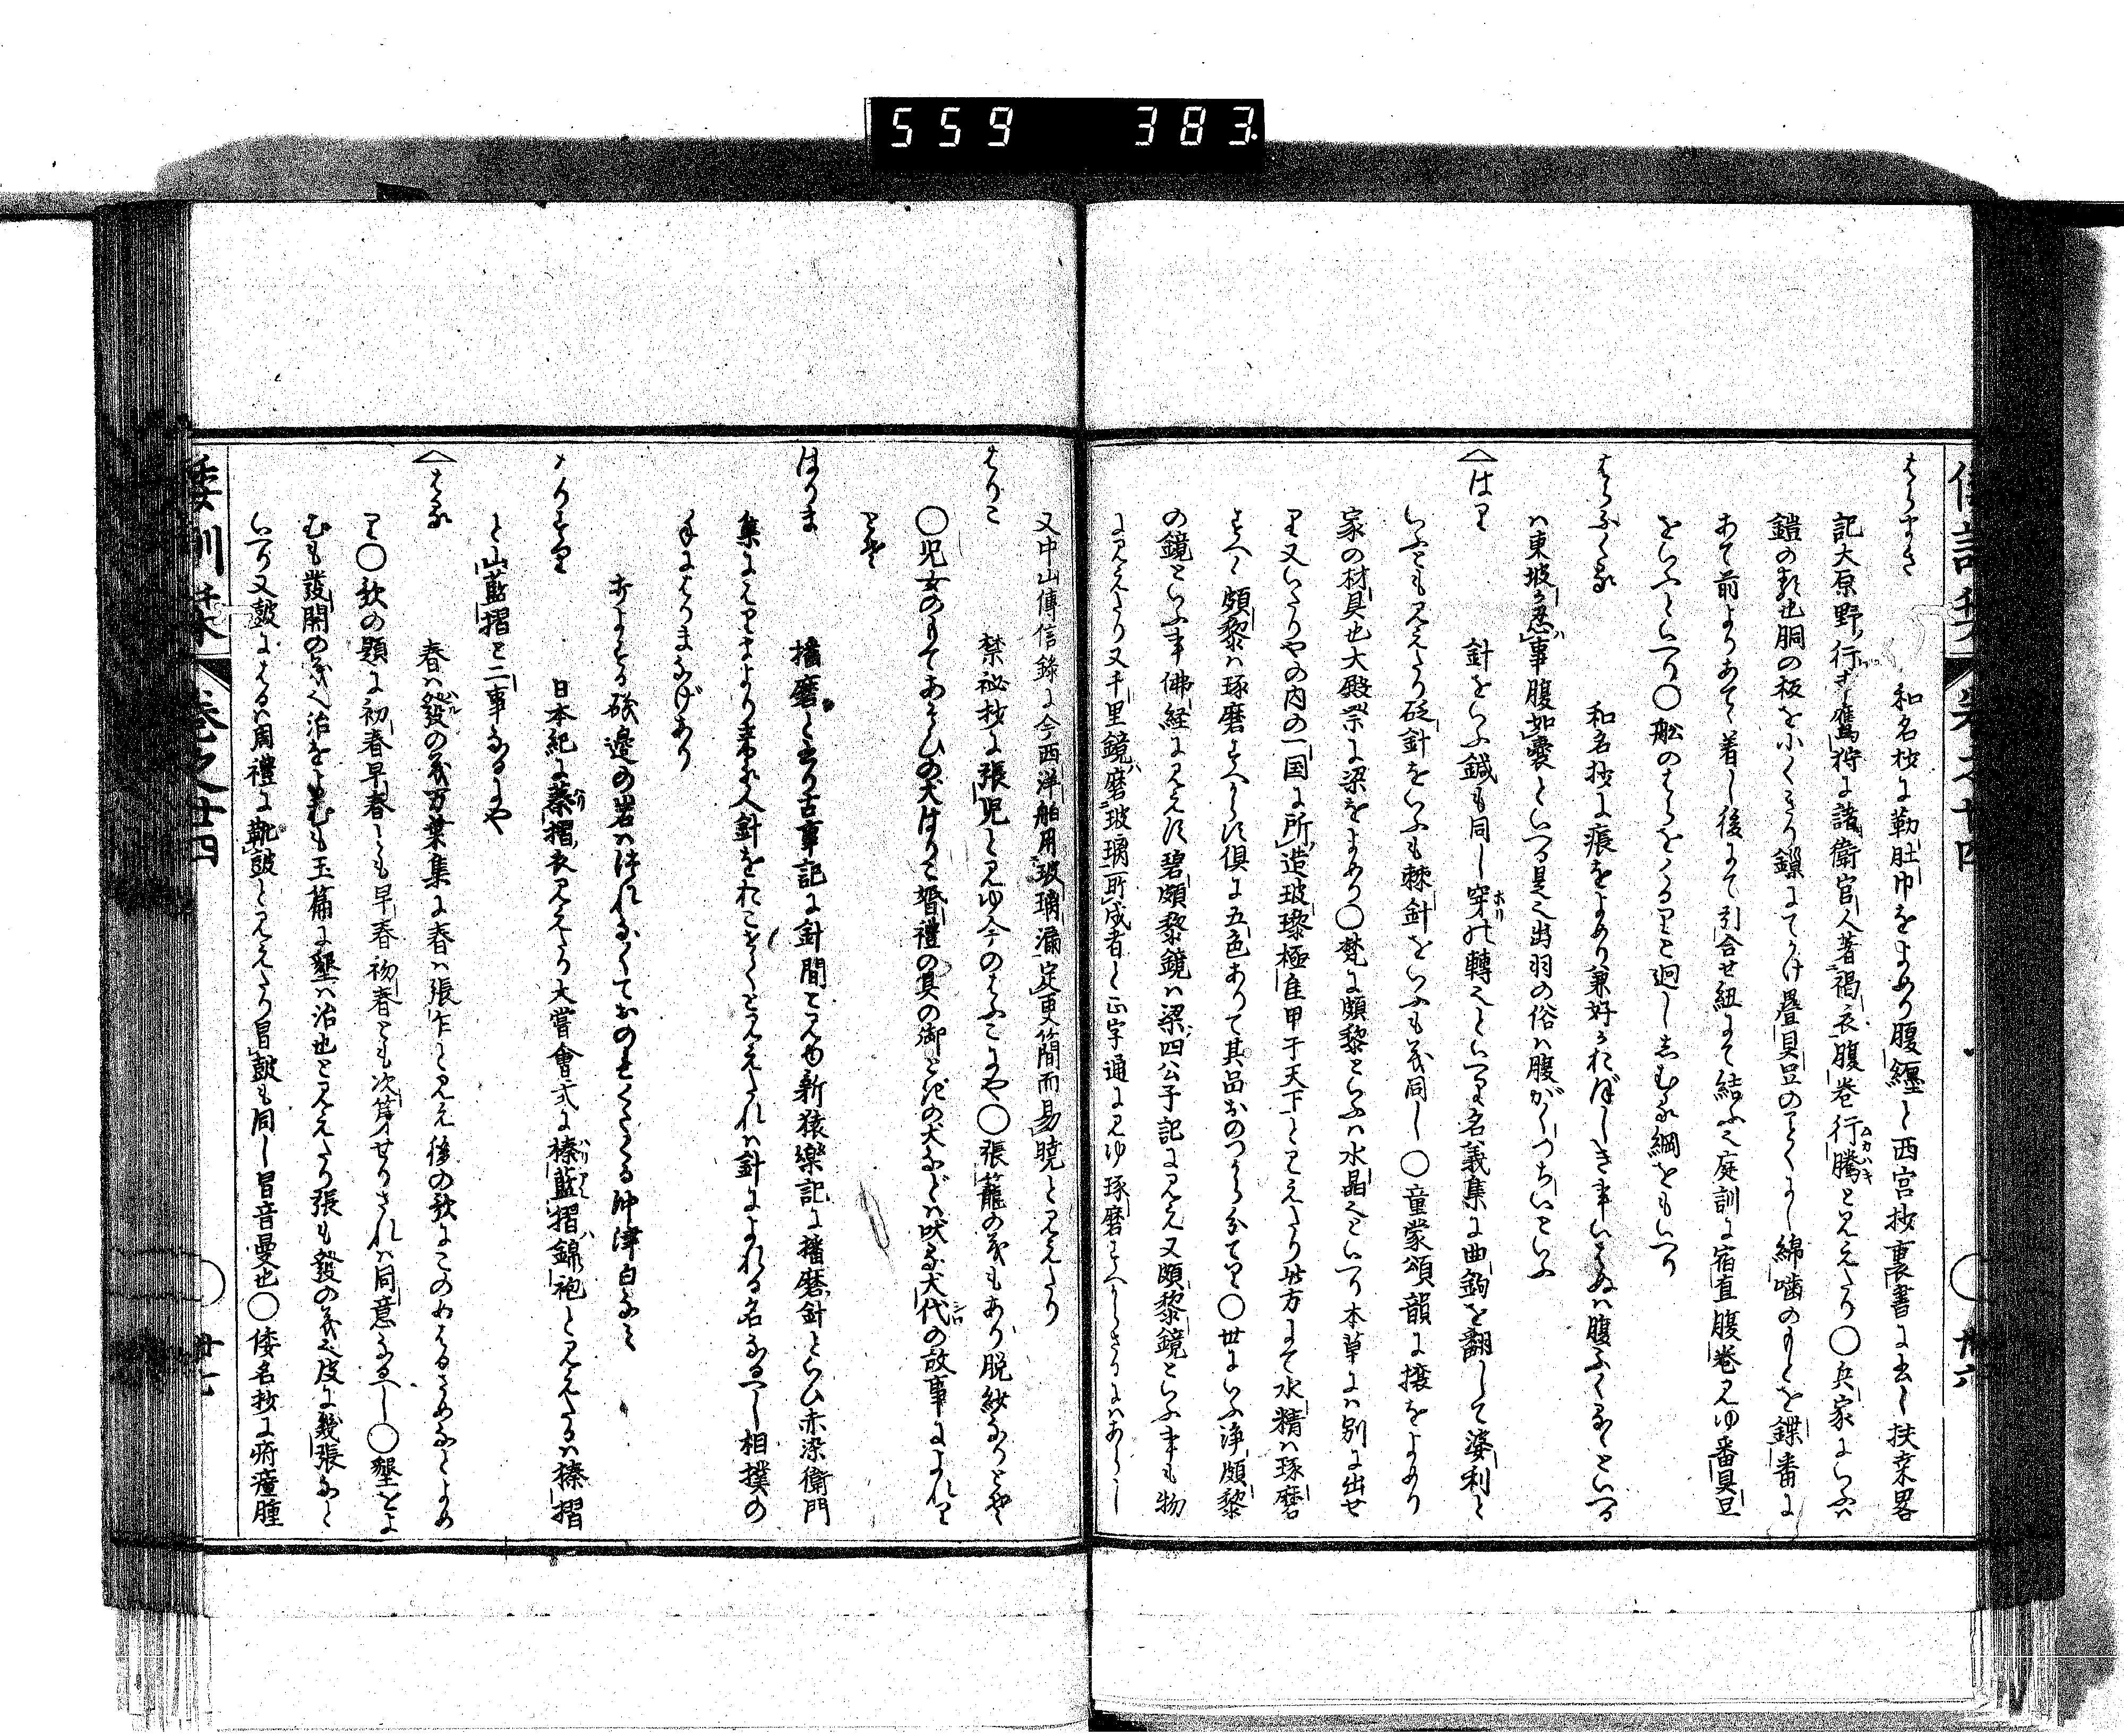 559 383
はらまき 和名抄に勒肚巾をよめり腹纏と西宮抄裏書に出し扶桑畧
記大原野行幸鷹狩に諸衛官人著褐衣腹巻行騰と見えたり〇兵家にいふハ
鎧の類也胴の板を小くきり鏁にてつけ畳具足のことくにし綿噛のもとを鏁番に
あて前よりあてゝ着し後にて引合せ紐にて結ふ也庭訓に宿直腹巻見ゆ番具足
をいふといへり〇舩のはらをくるりと廻ししむる綱をもいへり
はらふくる 和名抄に痕をよめり兼好かおほしき事いはぬハ腹ふくるゝといへる
ハ東坡か忍事腹如嚢といへる是也出羽の俗ハ腹がくつちいといふ
はり 針をいふ鍼も同し穿の轉也といへり名義集に曲鉤を翻して婆利と
いふとも見えたり砭針をいふも棘針をいふも義同し〇童蒙頌韻に㯮をよめり
家の材具也大殿祭に梁をよめり〇梵に頗黎といふハ水晶也といへり本草にハ別に出せ
り又いたりやの内の一国に所造玻瓈極佳甲于天下と見えたり此方にて水精ハ琢磨
すへく頗黎ハ琢磨すへからす倶に五色ありて其品おのつから分てり〇世にいふ浄頗黎
の鏡といふ事佛経に見えす碧頗黎鏡ハ梁四公子記に見え又頗黎鏡といふ事も物
に見えたり又千里鏡ハ磨玻璃所成者と正字通に見ゆ琢磨すへからさるにハあらし
又中山傳信錄に今西洋舶用玻璃漏定更簡而易暁と見えたり
はりこ 禁祕抄に張児と見ゆ今のはふこにや〇張籠の義もあり脱紗なりとそ
〇児女のもてあそひの犬はりこ婚禮の具の御とぎの犬などハ吠る犬代の故事によれり
とそ
はりま 播磨と書り古事記に針間と見ゆ新猿樂記に播磨針といひ赤染衛門
集にはりまより来る人針をおこすとて見えたれハ針によれる名なるへし相撲の
手にはりまなげあり
おりよする磯邉の岩ハつれなくておのれくたくる沖津白なみ
はりすり 日本紀に蓁摺衣見えたり大嘗會式に榛藍摺錦袍と見えたるハ榛摺
と山藍摺と二事なるにや
はる 春ハ發の義万葉集に春ハ張乍と見え後の歌にこのめはるさめなとよめ
り〇歌の題に初春早春とも早春初春とも次第せりされハ同意なるへし〇墾をよ
むも發開の義也治をよむも玉篇に墾ハ治也と見えたり張も發の義也皮に幾張なと
いへり又鼓にはるハ周禮に靴鼓と見えたり冒鼓も同し冒音曼也〇倭名抄に疛瘇腫
倭訓栞 巻之廿四 卅七